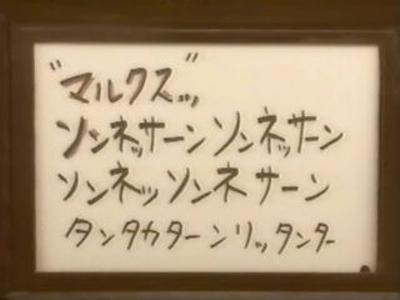 "マルクスッ"
ソンネッサーンソンネッサーン
ソンネッソンネサーン
タンタカターンリッタンター